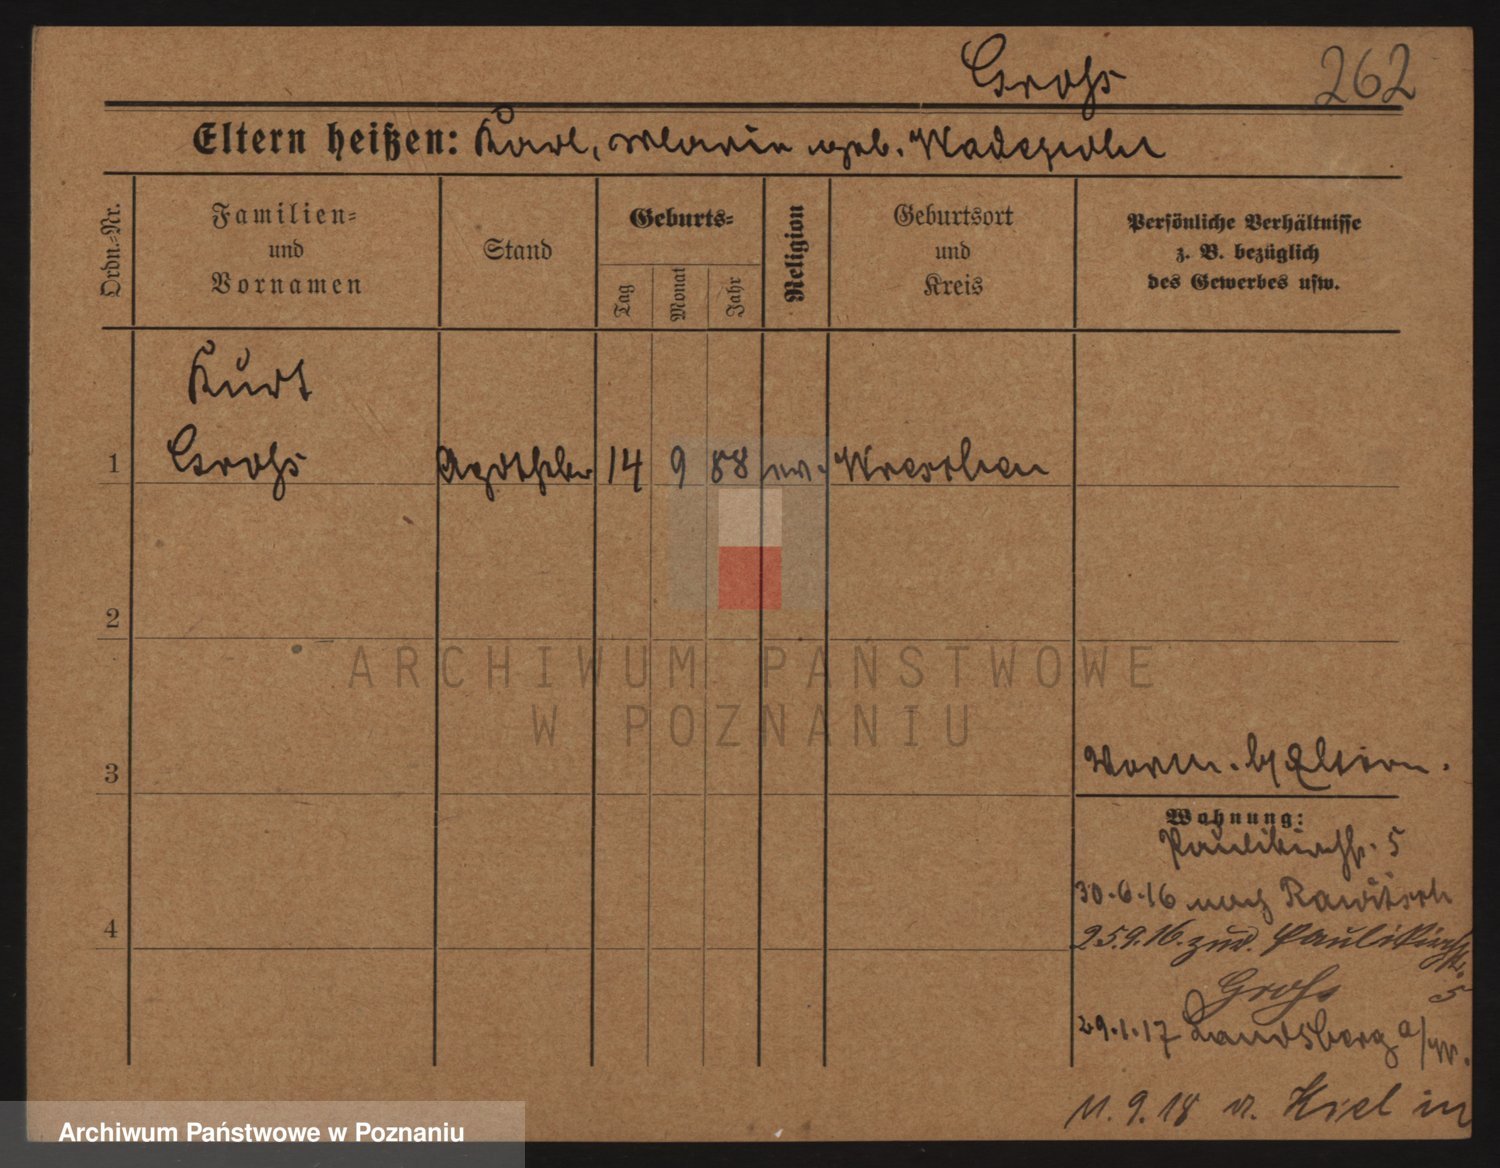 Groſs 262
Eltern heißen: Karl, Marie geb. Wadepohl
Ordn.-Nr.
Familien-
und
Vornamen
Stand
Geburts-
Tag
Monat
Jahr
Religion
Geburtsort
und
Kreis
Persönliche Verhältnisse
z. B. bezüglich
des Gewerbes usw.
Kurt
1 Groſs Apotheker 14 9 88 ev. Wreschen
2
3
4
b/ Eltern.
Wohnung:
Paulikirchstr. 5
30.6.16 nach Rawitsch
25.9.16. zur. Paulikirchstr.
Groſs 5
29.1.17 Landsberg a/W.
11.9.18 v. Kiel in
ARCHIWUM PAŃSTWOWE
W POZNANIU
Archiwum Państwowe w Poznaniu